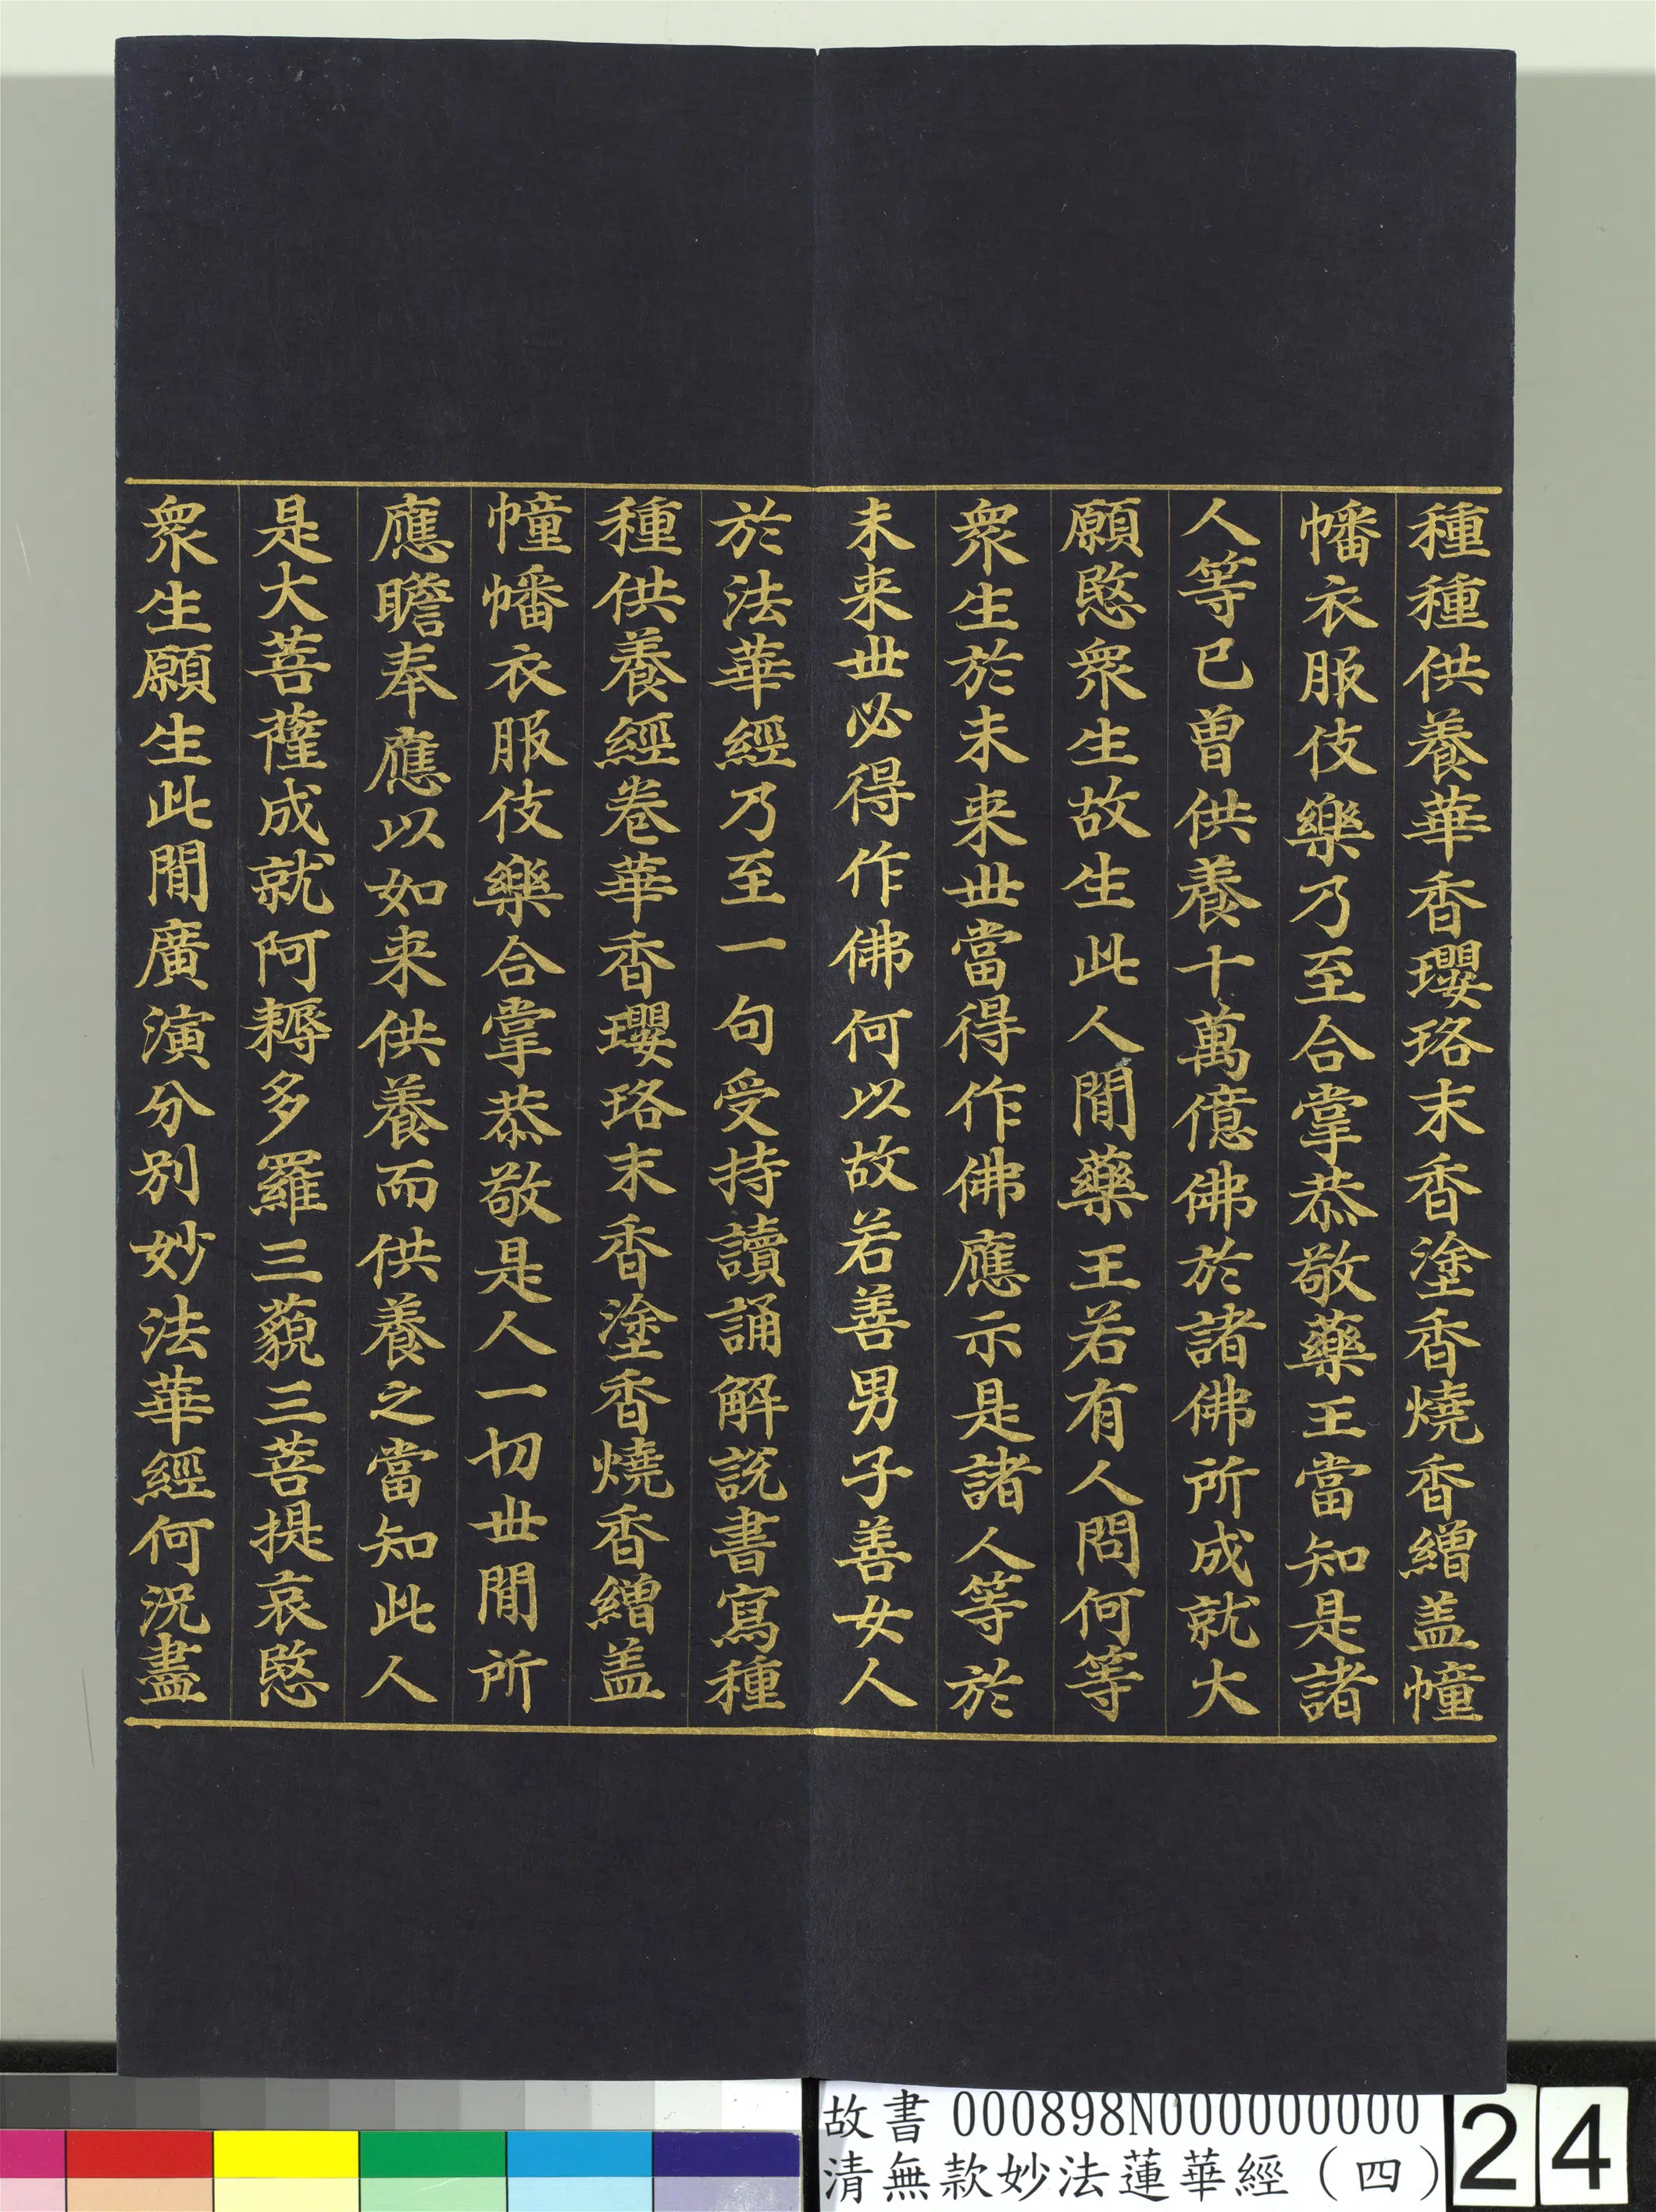 種種供養華香瓔珞末香塗香燒香繒盖幢
幡衣服伎樂乃至合掌恭敬藥王當知是諸
人等已曾供養十萬億佛於諸佛所成就大
願愍衆生故生此人間藥王若有人問何等
衆生於未来世當得作佛應示是諸人等於
未来世必得作佛何以故若善男子善女人
於法華經乃至一句受持讀誦解説書寫種
種供養經卷華香瓔珞末香塗香燒香繒盖
幢幡衣服伎樂合掌恭敬是人一切世間所
應瞻奉應以如来供養而供養之當知此人
是大菩薩成就阿耨多羅三藐三菩提哀愍
衆生願生此間廣演分別妙法華經何況盡
故書 000898N000000000
清無款妙法蓮華經（四）
24